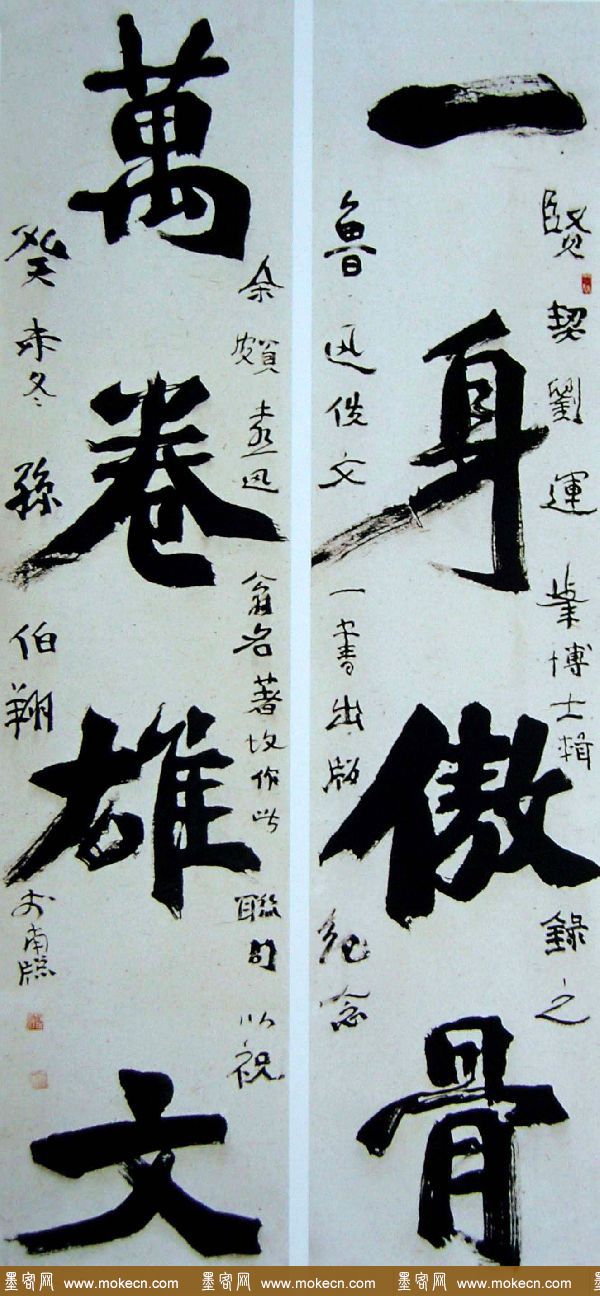 賢契劉運峯博士輯錄之
一身傲骨
魯迅佚文一書出版紀念
余頗喜迅翁名著故作此聯 以祝
萬卷雄文
癸未冬孫伯翔於南
墨客网 www.mokecn.com 墨客网 www.mokecn.com 墨客网 www.mokecn.com 墨客网